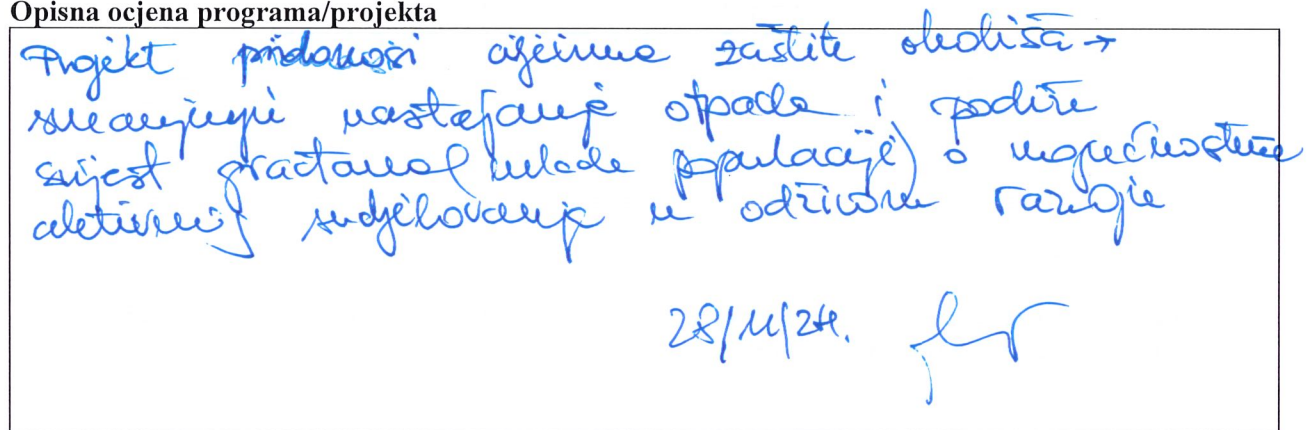 Opisna ocjena programa/projekta
Projekt pridonosi ciljevima zaštite okoliša →
smanjenje nastajanje otpada i podiže
svijest građana (mlade populacije) o mogućnostima
aktivnog sudjelovanja u održivom razvoju
28/11/24.